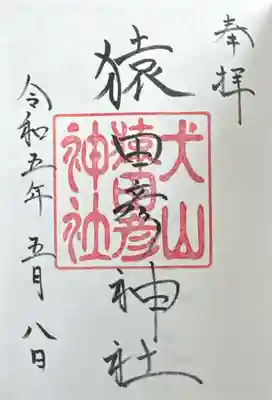 奉拝
猿田彦神社
犬山
猿田彦
神社
令和五年 五月 八日